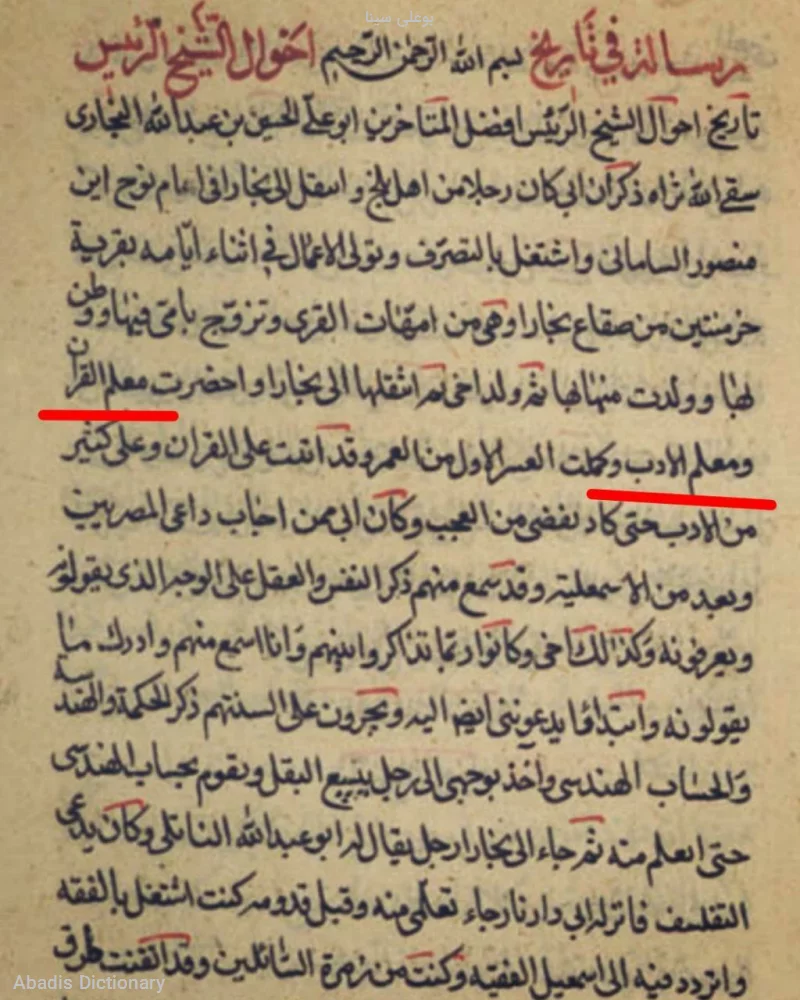 بوعلی سینا
رسالة في تاريخ بسم الله الرحمن الرحيم احوال الشيخ الرئيس
تاريخ احوال الشيخ الرئيس افضل المتاخرين ابو على الحسين بن عبدالله البخارى
سقى الله ثراه ذكر ان ابي كان رجلا من اهل بلخ و انتقل الى بخارا في ايام نوح ابن
منصور السامانى واشتغل بالتصرف وتولى الاعمال في اثناء ايامه بقرية
خرمنتين من صقاع بخارا وهى من امهات القرى وتزوج بامى فيها ووطن
لها وولدت منها بها ثم ولد اخى ثم انتقلها الى بخارا واحضرت معلم القرآن
ومعلم الادب وكملت العشر الاول من العمر وقد اتيت على القران وعلى كثير
من الادب حتى كاد يقضى من العجب وكان ابى ممن اجاب داعى المصريين
ويعد من الاسمعلية وقد سمع منهم ذكر النفس والعقل على الوجه الذى يقولونه
ويعرفونه وكذالك اخى وكانوا ربما تذاكروا بينهم وانا اسمع منهم وادرك ما
يقولونه وابتداوا يدعوننى ايضا اليه ويجرون على السنتهم ذكر الحكمة والهندسة
والحساب الهندسى واخذ يوجهى الى رجل يبيع البقل ويقوم بحساب الهندسى
حتى اتعلم منه ثم جاء الى بخارا رجل يقال له ابو عبدالله الناتلى وكان يدعى
التفلسف فانزله ابي دارنا رجاء تعلمى منه وقبل قدومه كنت اشتغل بالفقه
واتردد فيه الى اسمعيل الفقيه وكنت من زمرة السائلين وقد اتقنت طرق
Abadis Dictionary